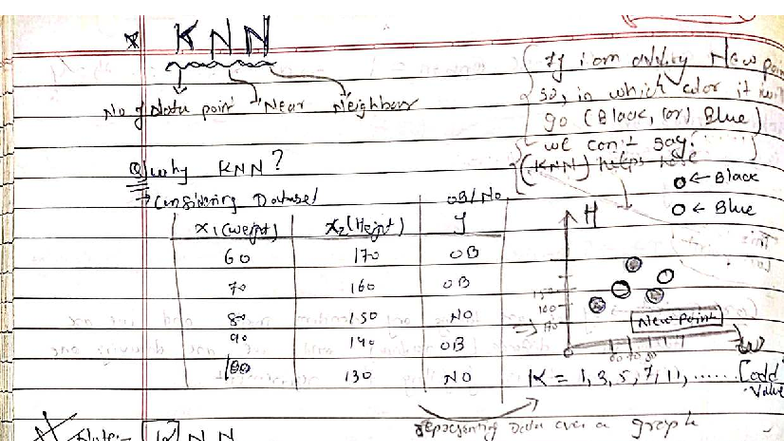 * KNN
No of Data point Near Neighbour
If i am adding New poin
so, in which color it will
go (Black, (or) Blue)
we can't say!
(KNN) helps here
Q) Why KNN?
→ Considering Dataset
X1 (weight) X2 (Height) OB/No y
60 170 OB
70 160 OB
80 150 NO
90 140 OB
100 130 NO
← Black
← Blue
H
150
New Point
60 70 80
W
K = 1, 3, 5, 7, 11, ...... [odd
value
representing Data over a graph
Note:- KNN